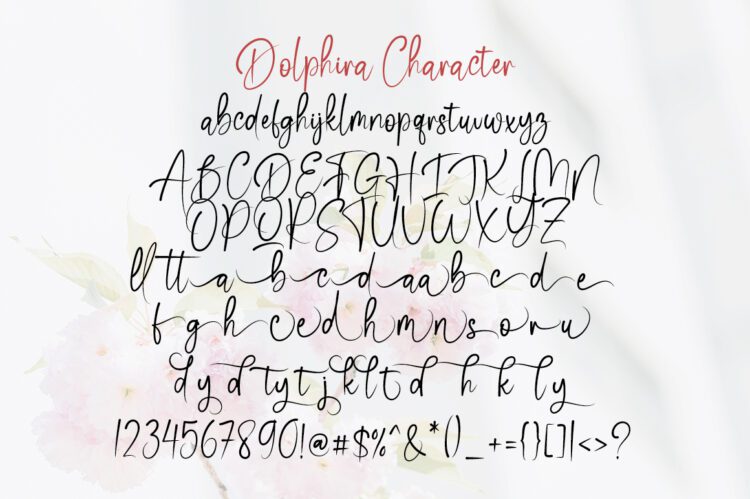 Dolphira Character
abcdefghijklmnopqrstuvwxyz
ABCDEFGHIJKLMN
OPQRSTUVWXYZ
ll tt a b c d a a b c d e
f g h c e d h m n s o r u
d y d ty t j k l t d h k ly
1234567890!@#$%^&*()_-+={}[]|<>?